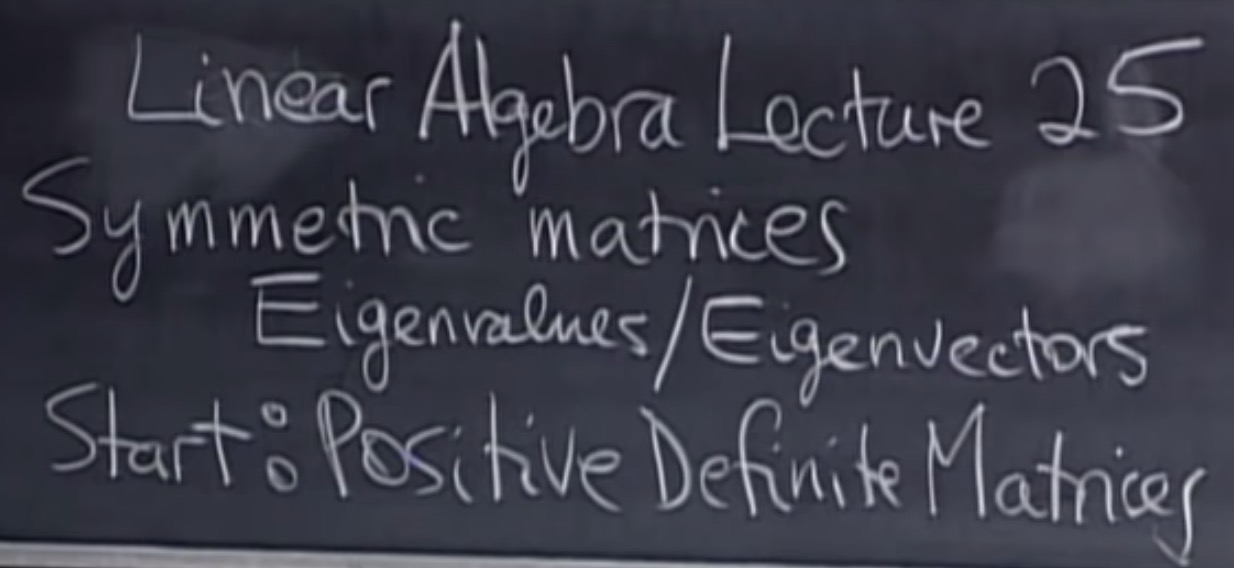 Linear Algebra Lecture 25
Symmetric matrices
Eigenvalues/Eigenvectors
Start: Positive Definite Matrices